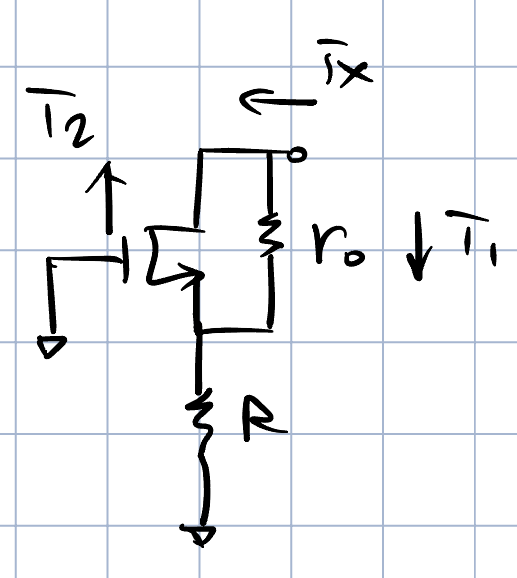 Ix
I2
ro
I1
R